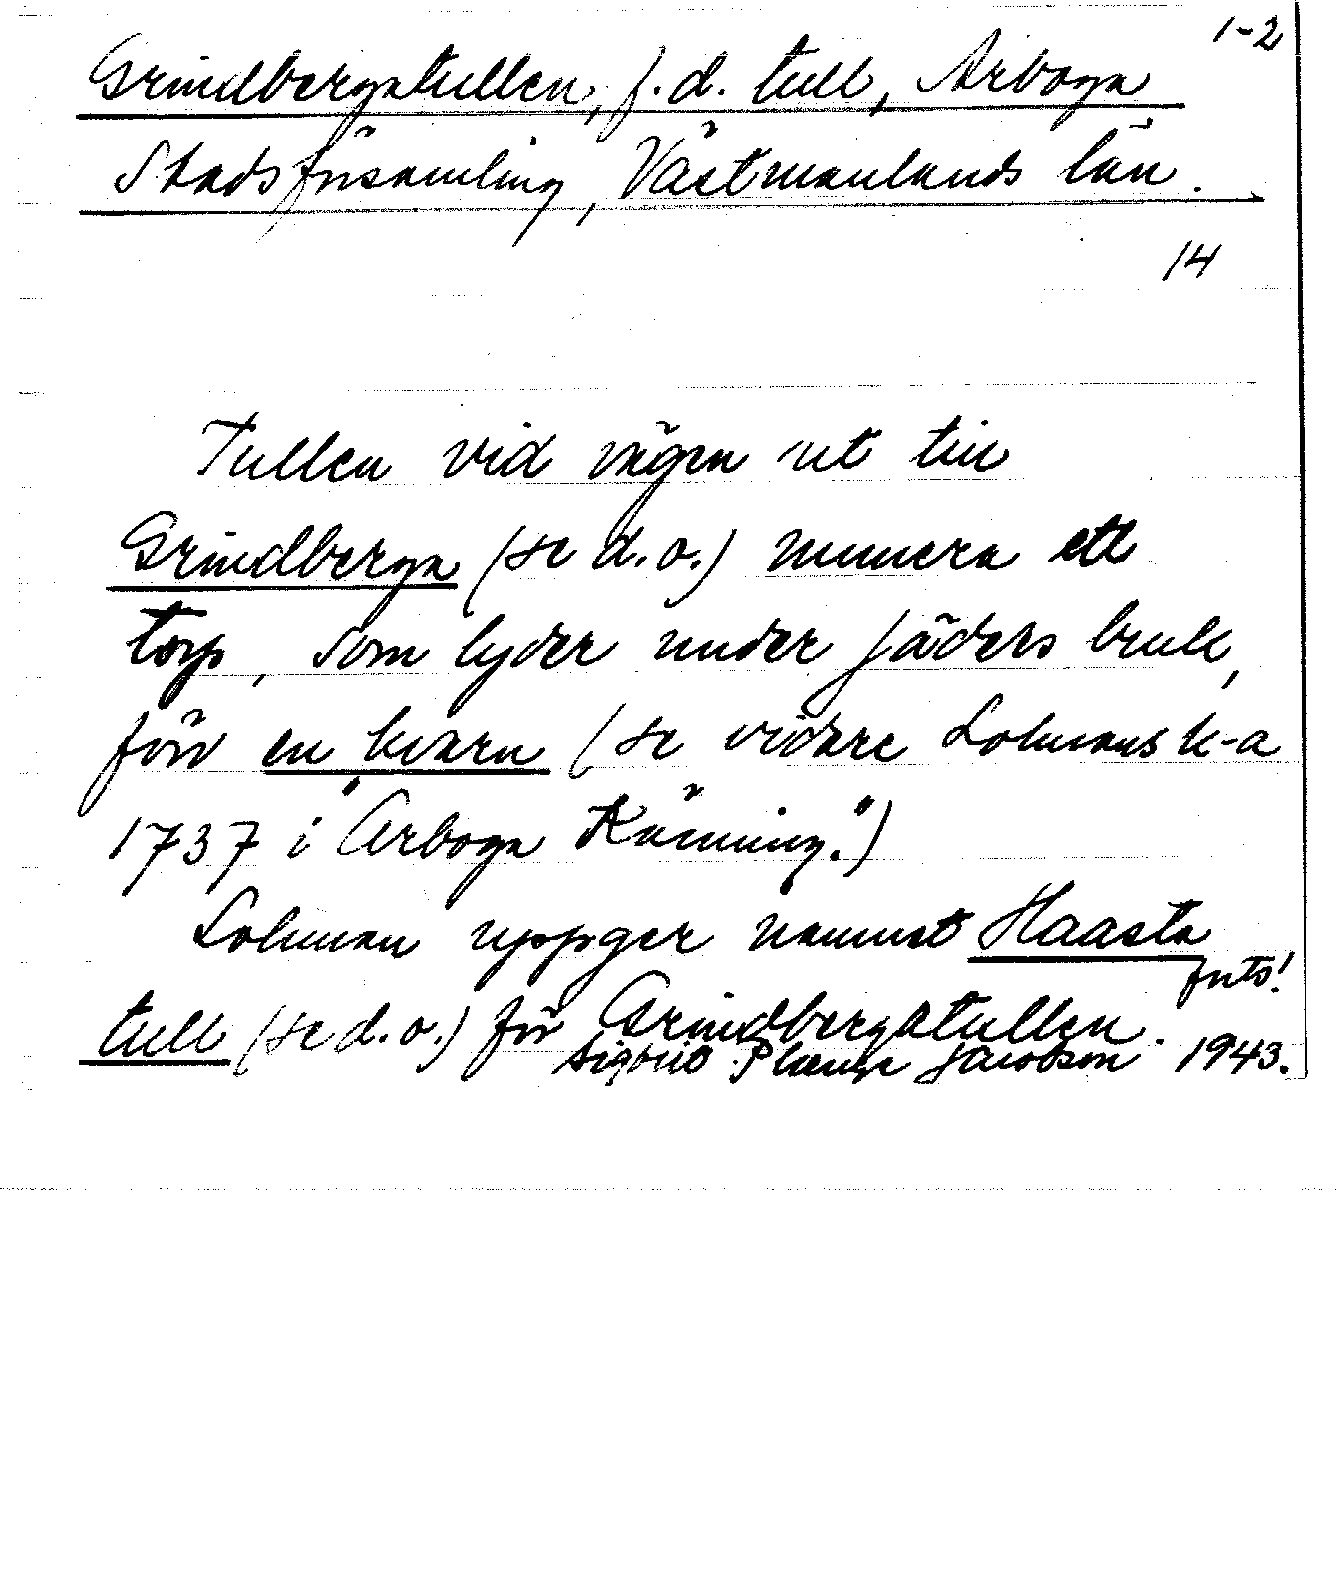 1-2
Grindbergatullen, f.d. tull, Arboga
Stadsförsamling, Västmanlands län.
14
Tullen vid vägen ut till
Grindberga (se d.o.) numera ett
torp, som lyder under Jäders bruk,
förr en kvarn (se vidare Lohmans k-a
1737 i "Arboga Känning".)
Lohman uppger namnet Haasta
forts!
tull (se d.o.) för Grindbergatullen.
Sigbrit Plænge Jacobson 1943.